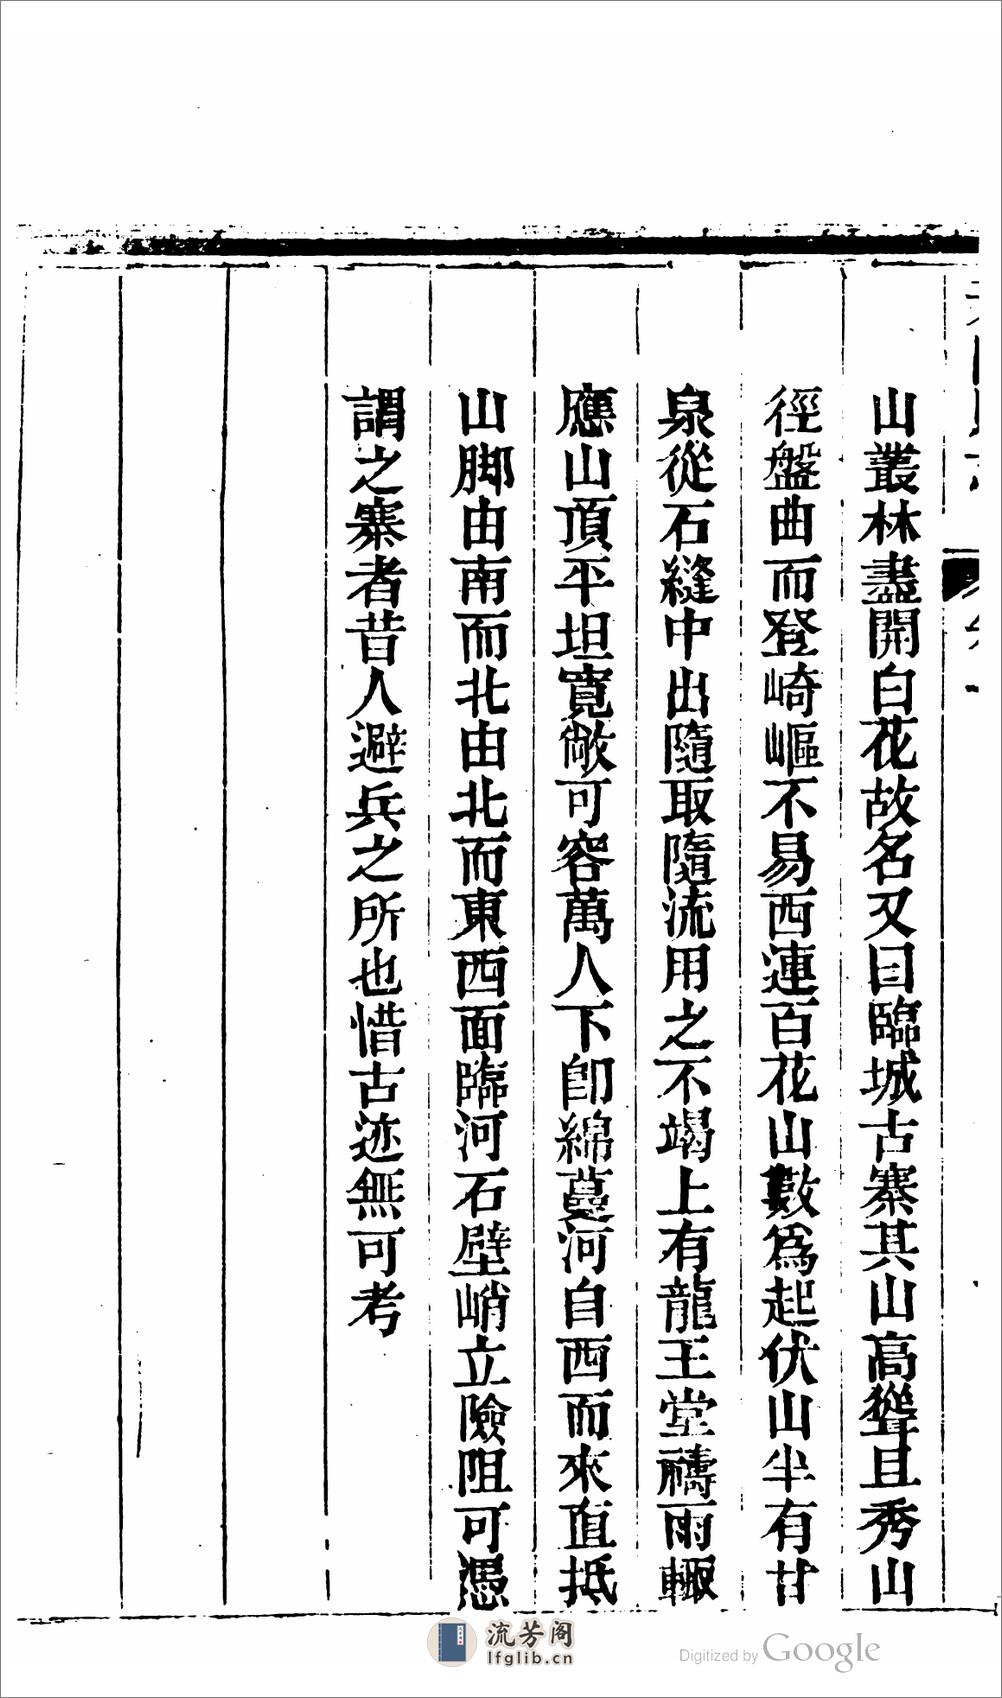 山叢林盡開白花故名又曰臨城古寨其山高聳且秀山
徑盤曲而登崎嶇不易西連百花山數爲起伏山半有甘
泉從石縫中出隨取隨流用之不竭上有龍王堂禱雨輙
應山頂平坦寬敞可容萬人下卽綿蔓河自西而來直抵
山脚由南而北由北而東西面臨河石壁峭立險阻可憑
謂之寨者昔人避兵之所也惜古迹無可考
流芳阁
lfglib.cn
Digitized by Google